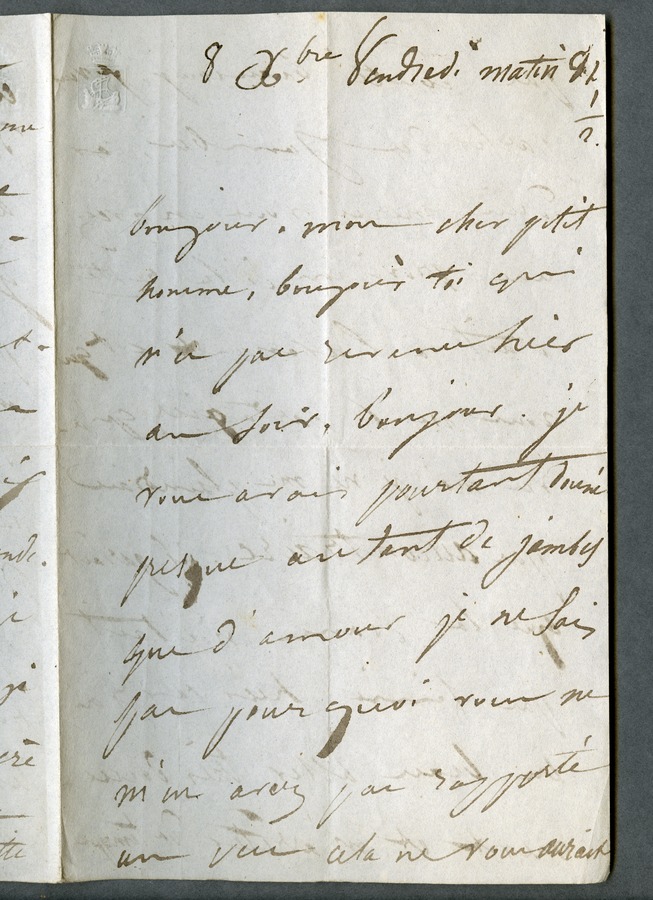 8 Xbre Vendredi matin 8h 1/2.
bonjour, mon cher petit
homme, bonjour toi qui
n'es pas revenu hier
au soir, bonjour. je
vous avais pourtant donné
presque autant de jambes
que d'amour je ne sais
pas pourquoi vous ne
m'en avez pas rapporté
un peu cela ne vous aurait